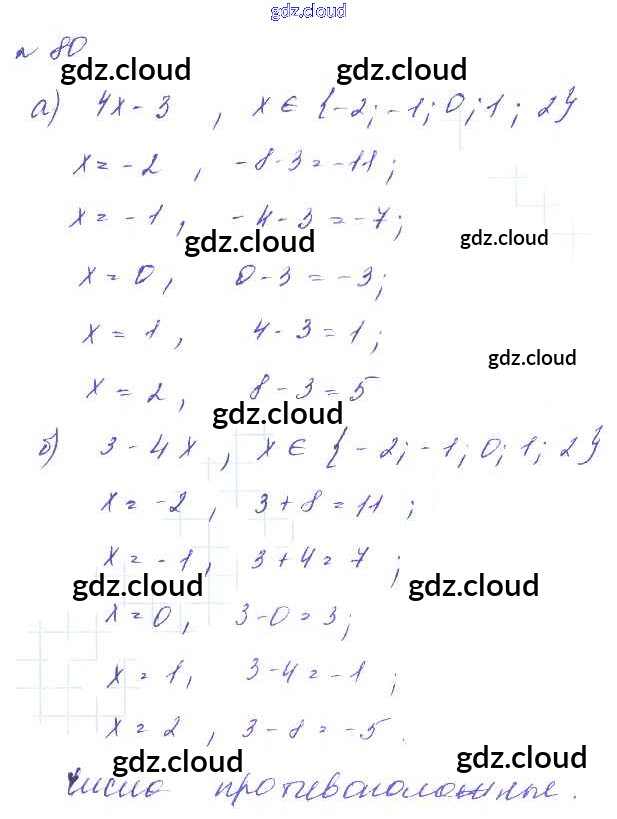 gdz.cloud
№ 80
gdz.cloud gdz.cloud
а) 4x - 3 , x ∈ {-2; -1; 0; 1; 2}
x = -2 , -8-3 = -11 ;
x = -1 , -4-3 = -7 ;
gdz.cloud gdz.cloud
x = 0 , 0-3 = -3 ;
x = 1 , 4-3 = 1 ;
gdz.cloud
x = 2 , 8-3 = 5
gdz.cloud
б) 3 - 4x , x ∈ {-2; -1; 0; 1; 2}
x = -2 , 3+8 = 11 ;
x = -1 , 3+4 = 7 ;
gdz.cloud gdz.cloud
x = 0 , 3-0 = 3 ;
x = 1 , 3-4 = -1 ;
x = 2 , 3-8 = -5 .
gdz.cloud gdz.cloud
Числа противоположные .